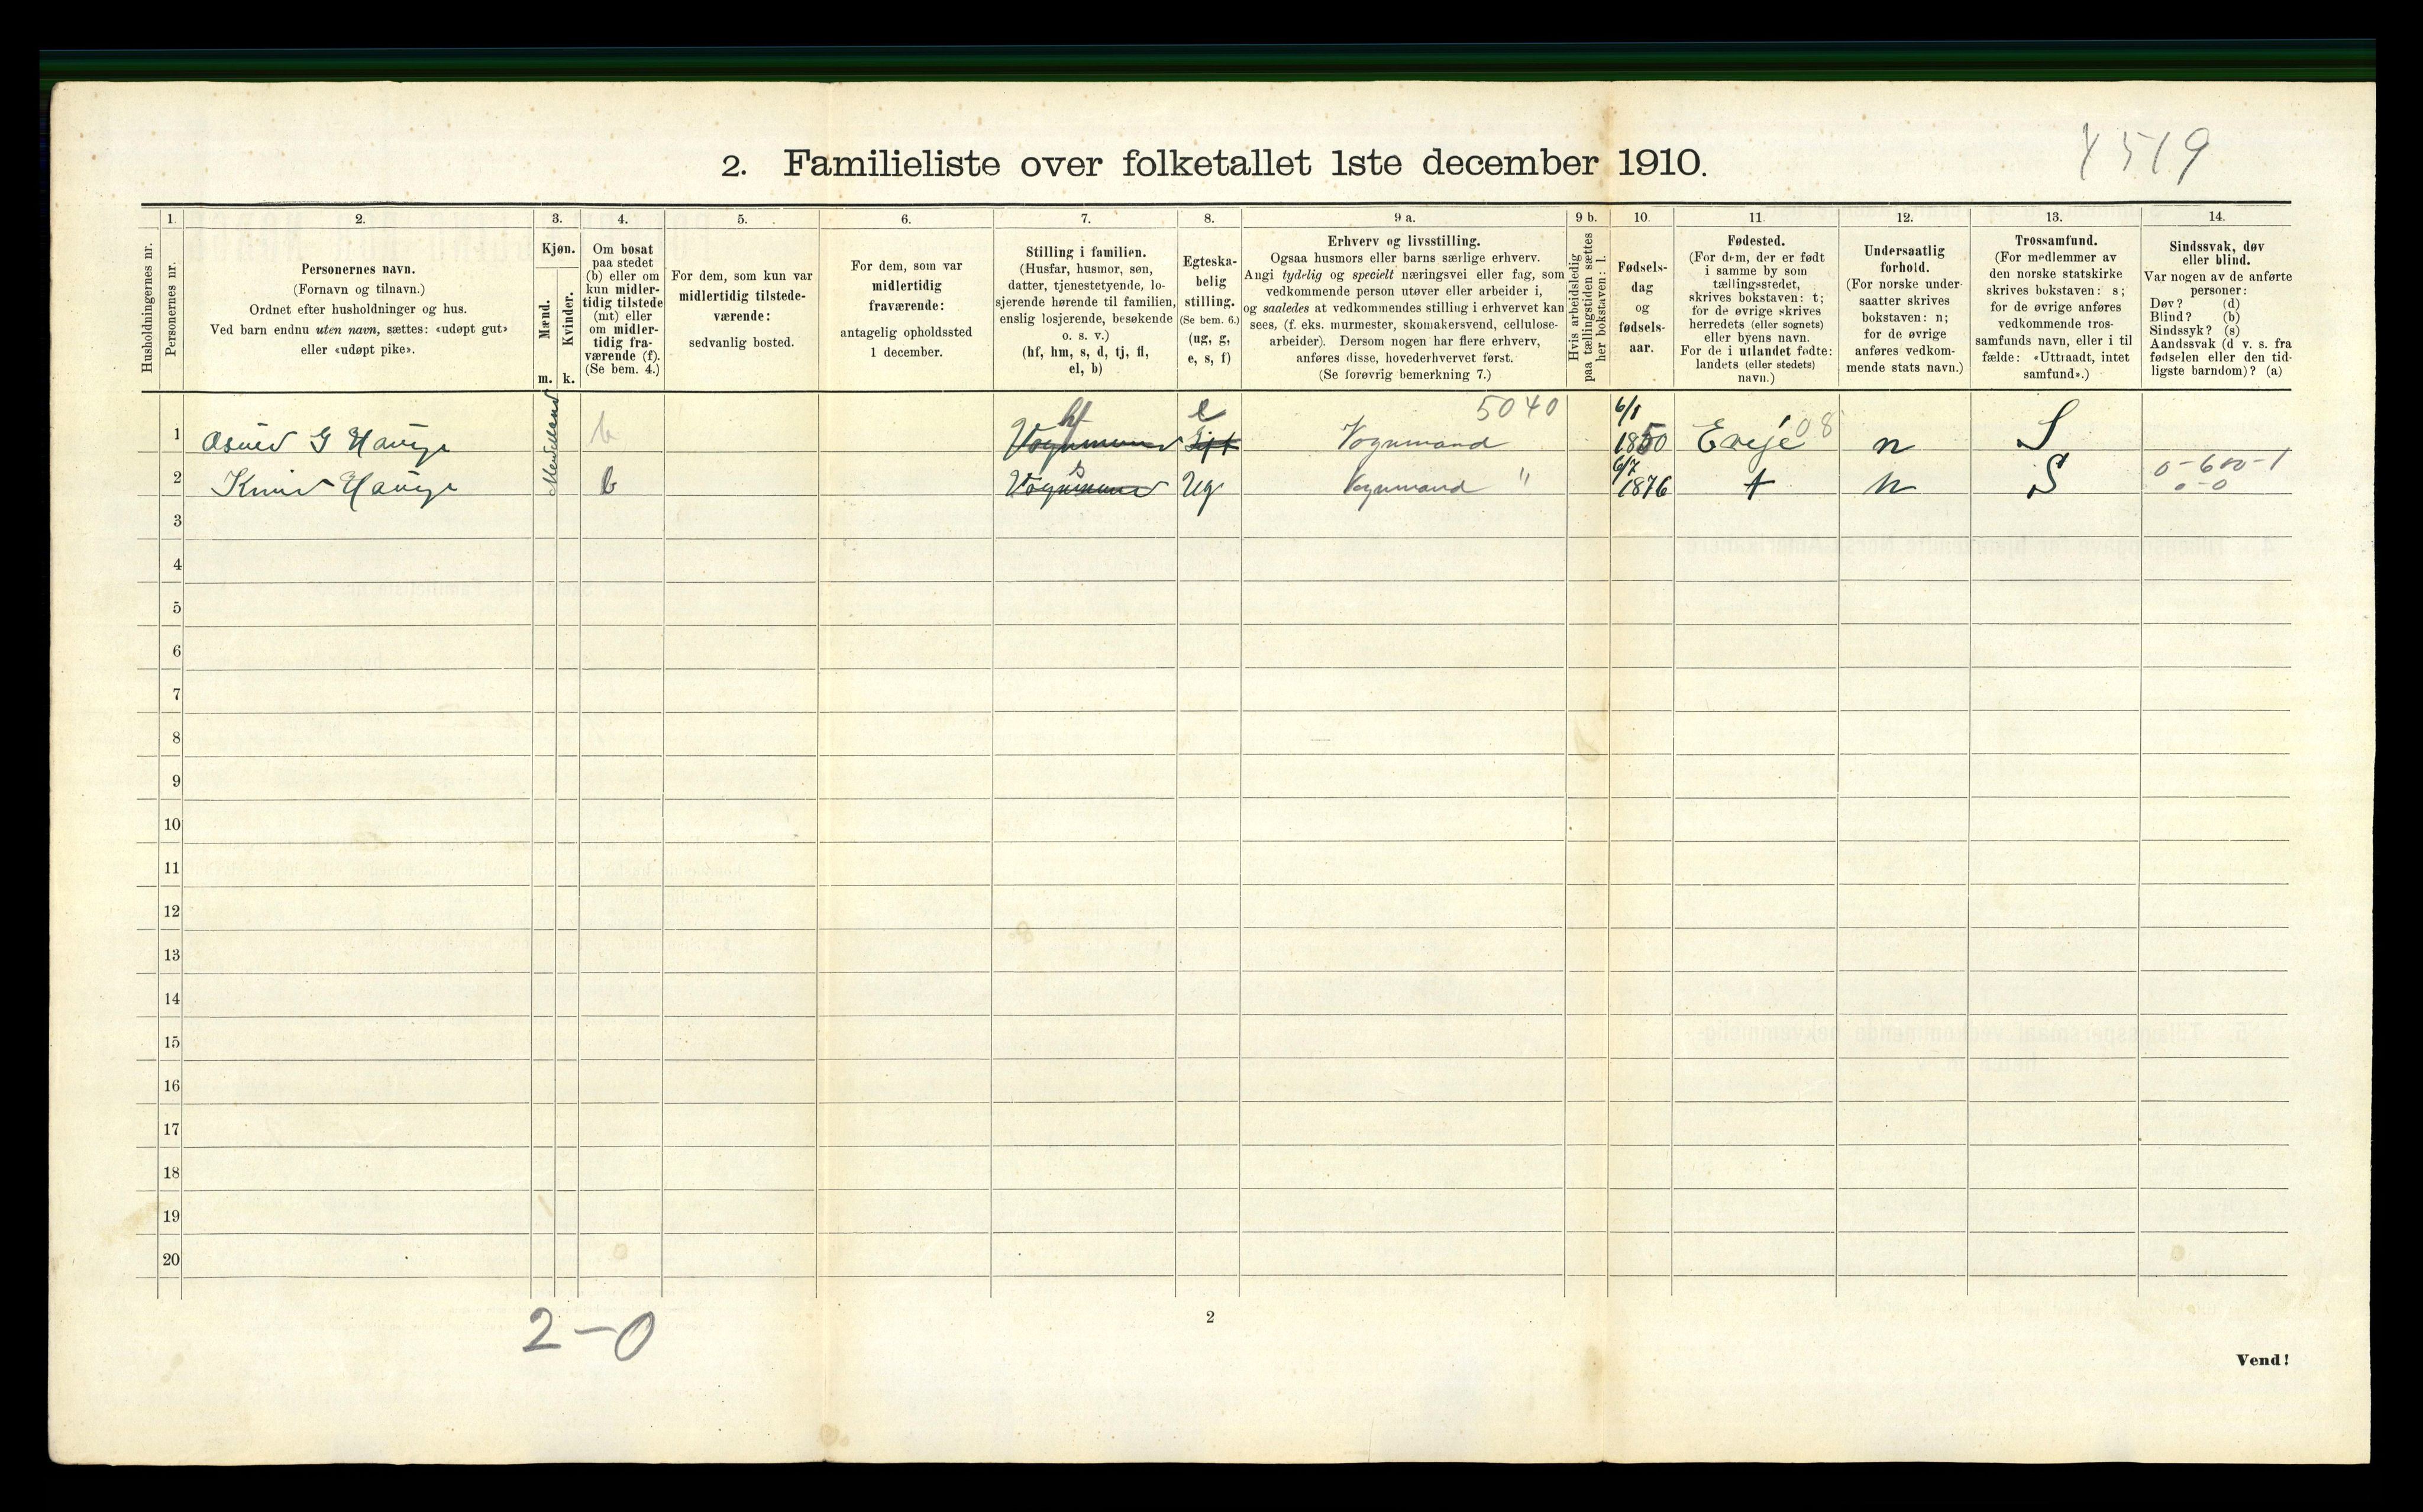 4519
2. Familieliste over folketallet 1ste december 1910.
Husholdningernes nr.
1.
Personernes nr.
2.
Personernes navn.
(Fornavn og tilnavn.)
Ordnet efter husholdninger og hus.
Ved barn endnu uten navn, sættes: «udøpt gut»
eller «udøpt pike».
3.
Kjøn.
Mænd.
Kvinder.
m. k.
4.
Om bosat
paa stedet
(b) eller om
kun midler-
tidig tilstede
(mt) eller
om midler-
tidig fra-
værende (f).
(Se bem. 4.)
5.
For dem, som kun var
midlertidig tilstede-
værende:
sedvanlig bosted.
6.
For dem, som var
midlertidig
fraværende:
antagelig opholdssted
1 december.
7.
Stilling i familien.
(Husfar, husmor, søn,
datter, tjenestetyende, lo-
sjerende hørende til familien,
enslig losjerende, besøkende
o. s. v.)
(hf, hm, s, d, tj, fl,
el, b)
8.
Egteska-
belig
stilling.
(Se bem. 6.)
(ug, g,
e, s, f)
9 a.
Erhverv og livsstilling.
Ogsaa husmors eller barns særlige erhverv.
Angi tydelig og specielt næringsvei eller fag, som
vedkommende person utøver eller arbeider i,
og saaledes at vedkommendes stilling i erhvervet kan
sees, (f. eks. murmester, skomakersvend, cellulose-
arbeider). Dersom nogen har flere erhverv,
anføres disse, hovederhvervet først.
(Se forøvrig bemerkning 7.)
9 b.
Hvis arbeidsledig
paa tællingstiden sættes
her bokstaven: l.
10.
Fødsels-
dag
og
fødsels-
aar.
11.
Fødested.
(For dem, der er født
i samme by som
tællingsstedet,
skrives bokstaven: t;
for de øvrige skrives
herredets (eller sognets)
eller byens navn.
For de i utlandet fødte:
landets (eller stedets)
navn.)
12.
Undersaatlig
forhold.
(For norske under-
saatter skrives
bokstaven: n;
for de øvrige
anføres vedkom-
mende stats navn.)
13.
Trossamfund.
(For medlemmer av
den norske statskirke
skrives bokstaven: s;
for de øvrige anføres
vedkommende tros-
samfunds navn, eller i til
fælde: «Uttraadt, intet
samfund».)
14.
Sindssvak, døv
eller blind.
Var nogen av de anførte
personer:
Døv? (d)
Blind? (b)
Sindssyk? (s)
Aandssvak (d v. s. fra
fødselen eller den tid-
ligste barndom)? (a)
hf e 5040 6/1
1 G Hauge b Vognmand Gift Vognmand 1850 Eveje 08 n S
2 Knud Hauge b s Vognmand Ug Vognmand " 6/7 1876 t n S 0-600-1
0-0
3
4
5
6
7
8
9
10
11
12
13
14
15
16
17
18
19
20
2-0
2
Vend!